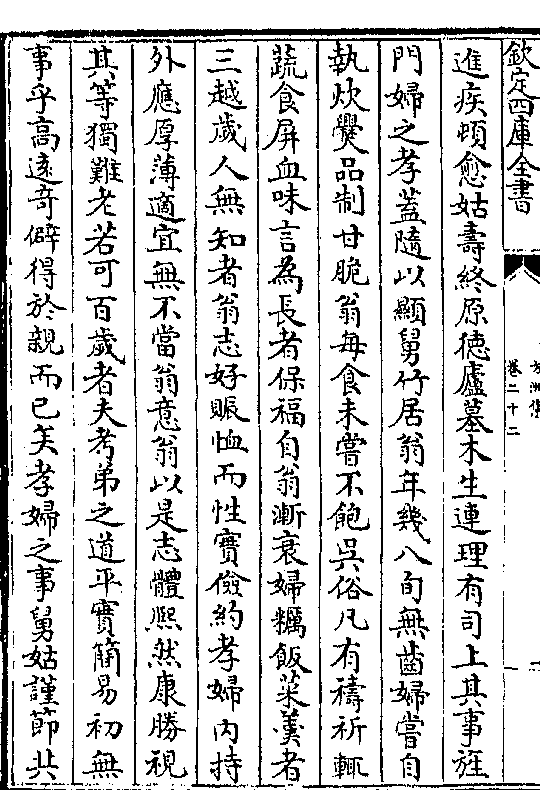 欽定四庫全書
卷二十二
進疾頓愈姑壽終原徳廬墓木生連理有司上其事旌
門婦之孝蓋隨以顯舅竹居翁年幾八旬無齒婦嘗自
執炊爨品制甘脆翁每食未嘗不飽吳俗凡有禱祈輒
蔬食屏血味言為長者保福自翁漸衰婦糲飯菜羮者
三越歲人無知者翁志好賑恤而性實儉約孝婦内持
外應厚薄適宜無不當翁意翁以是志體熈然康勝視
其等獨難老若可百歲者夫孝弟之道平實簡易初無
事乎高遠竒僻得於親而已矣孝婦之事舅姑謹節共